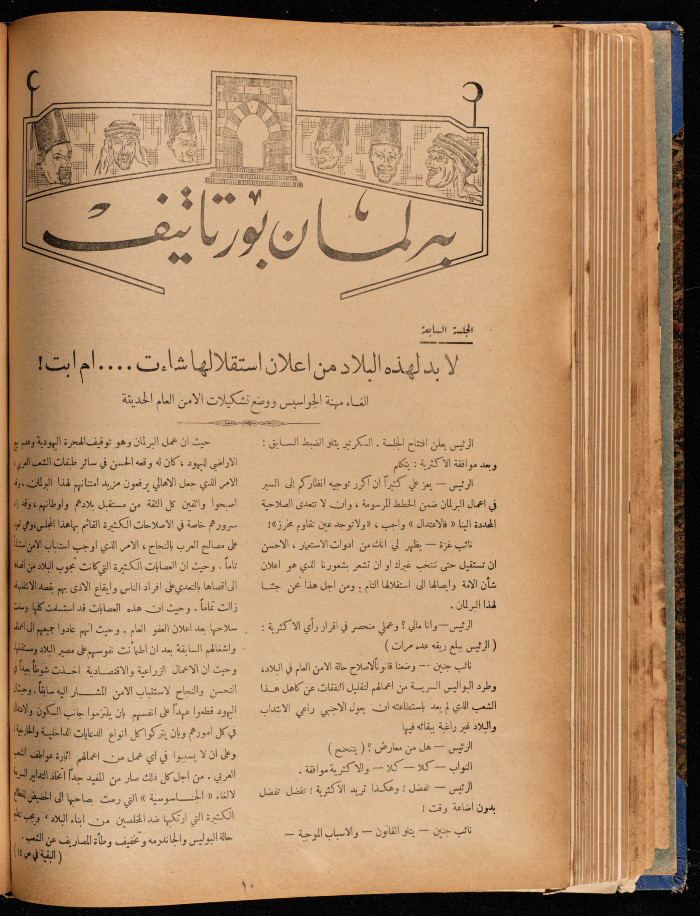 برلمان بورتاتيف
الجلسة السابعة
لا بد لهذه البلاد من اعلان استقلالها شاءت .... ام ابت !
الغاء مهنة الجواسيس ووضع تشكيلات الامن العام الحديثة
الرئيس يعلن افتتاح الجلسة . السكرتير يتلو الضبط السابق :
وبعد موافقة الاكثرية : يتكلم
الرئيس — يعز علي كثيراً ان اكرر توجيه انظاركم الى السير
في اعمال البرلمان ضمن الخطط المرسومة ، وان لا تتعدى الصلاحية
المحددة الينا « فالاعتدال » واجب ، « ولا توجد عين تقاوم مخرز »!
نائب غزة — يظهر لي انك من ادوات الاستعمار ، الاحسن
ان تستقيل حتى ننتخب غيرك او ان تشعر بشعورنا الذي هو اعلان
شأن الامة وايصالها الى استقلالها التام . ومن اجل هذا نحن جئنا
لهذا البرلمان .
الرئيس — وانا مالي ؟ وعملي منحصر في اقرار رأي الاكثرية :
( الرئيس يبلع ريقه عدة مرات )
نائب جنين — وضعنا قانوناً لاصلاح حالة الامن العام في البلاد،
وطرد البواليس السرية من اعمالهم لتقليل النفقات عن كاهل هذا
الشعب الذي لم يعد باستطاعته ان يعول الاجنبي راعي الانتداب
والبلاد غير راغبة ببقائه فيها
الرئيس — هل من معارض ؟ ( يتنحنح )
النواب — كلا — كلا — والاكثرية موافقة .
الرئيس — تفضل ! وهكذا تريد الاكثرية ! تفضل تفضل
بدون اضاعة وقت !
نائب جنين — يتلو القانون — والاسباب الموجبة —
حيث ان عمل البرلمان وهو توقيف الهجرة اليهودية وعدم بيع
الاراضي لليهود ، كان له وقعه الحسن في سائر طبقات الشعب العربي ،
الامر الذي جعل الاهالي يرفعون مزيد امتنانهم لهذا البرلمان ، وقد
اصبحوا واثقين كل الثقة من مستقبل بلادهم واوطانهم ، وقد زاد
سرورهم خاصة في الاصلاحات الكثيرة القائم بها هذا المجلس وهي تعود
على مصالح العرب بالنجاح ، الامر الذي اوجب استتباب الامن استتباباً
تاماً . وحيث ان العصابات الكثيرة التي كانت تجوب البلاد من اقصاها
الى اقصاها بالتعدي على افراد الناس وايقاع الاذى بهم بقصد الانتقام
زالت تماماً . وحيث ان هذه العصابات قد استسلمت كلها وسلمت
سلاحها بعد اعلان العفو العام . وحيث انهم عادوا جميعهم الى اعمالهم
واشغالهم السابقة بعد ان اطمأنت نفوسهم على مصير البلاد ومستقبلها
وحيث ان الاعمال الزراعية والاقتصادية اخذت شوطاً بعيداً في
التحسن والنجاح لاستتباب الامن المشار اليه سابقاً . وحيث ان
اليهود قطعوا عهداً على انفسهم بان يلتزموا جانب السكون والاعتدال
في كل امورهم وبان يتركوا كل انواع الدعايات الداخلية والخارجية ،
وعلى ان لا يسببوا في اي عمل من اعمالهم اثارة عواطف الشعب
العربي . من اجل كل ذلك صار من المفيد جداً اتخاذ التدابير السريعة
لالغاء « الجاسوسية » التي رمت بصاحبها الى الحضيض للفظائع
الكثيرة التي ارتكبها ضد المخلصين من ابناء البلاد ، ويجب تنقيح
حالة البوليس والجاندرمه وتخفيف وطأة المصاريف عن الشعب .
( البقية في ص ١٤ )
١٠